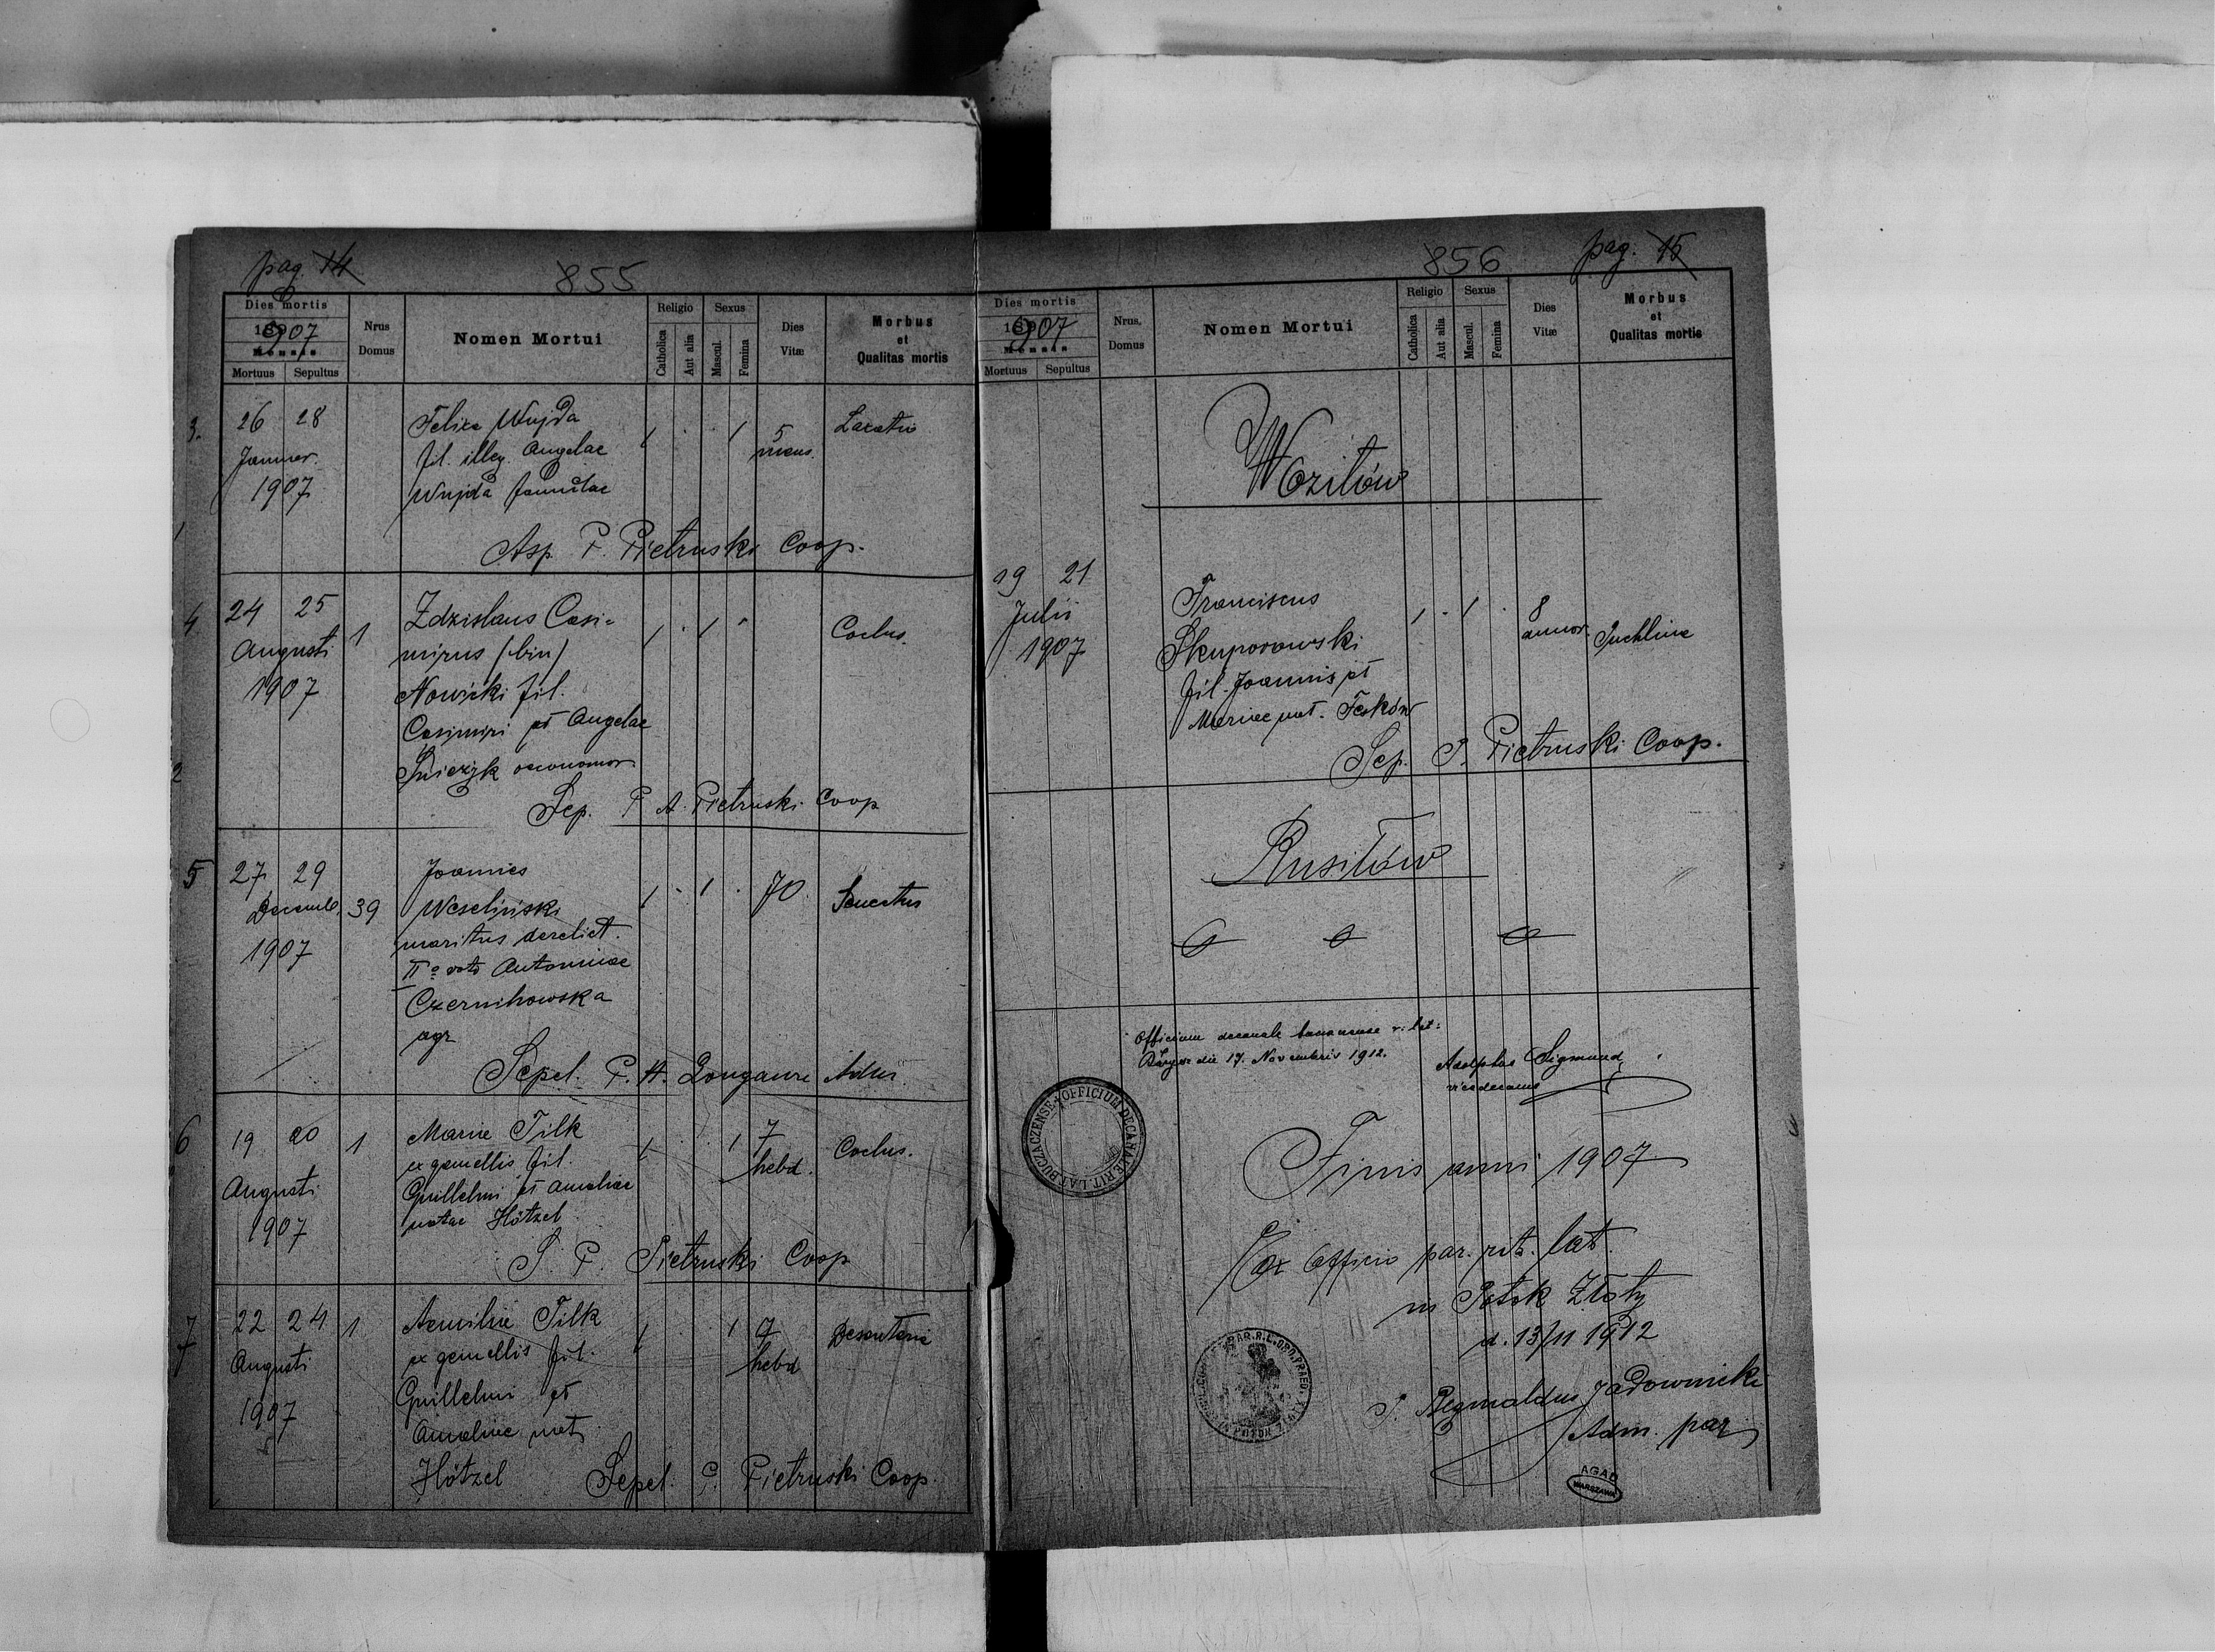 pag. 14
855
Dies mortis
1907
Mensis
Mortuus Sepultus
Nrus Domus
Nomen Mortui
Religio
Catholica
Aut alia
Sexus
Mascul.
Femina
Dies Vitæ
Morbus et Qualitas mortis
3. 26 28 Felixa Wujda 1 . . 1 5 Laxatio
Januar. fil. illeg. Angelae mens.
1907 Wujda famulae
Asp. P. Pietruski Coop.
4 24 25 1 Zdzislaus Casi= 1 . 1 . Coclus.
Augusti mirus (bin)
1907 Nowicki fil.
Casimiri et Angelae
oeconomor.
Sep. P. A. Pietruski Coop
5 27 29 39 Joannes 1 . 1 . 70 Senectus
Decemb. Weseliński
1907 maritus derelict.
IIo voto Antoninae
Czernihowska
agr
Sepel. P. H. Adm.
6 19 20 1 Marie Tilk 1 . . 1 7 Coclus.
Augusti ex gemellis fil. hebd.
1907 Guillelmi et Amaliae
natae Hötzel
S. P. Pietruski Coop
7 22 24 1 Aemilie Tilk 1 . . 1 7
Augusti ex gemellis fil. hebd
1907 Guillelmi et
Amaliae nat.
Hötzel Sepel. P. Pietruski Coop.
856
pag. 15
Dies mortis
1907
Mensis
Mortuus Sepultus
Nrus. Domus
Nomen Mortui
Religio
Catholica
Aut alia
Sexus
Mascul.
Femina
Dies Vitæ
Morbus et Qualitas mortis
Woziłów
19 21 Franciscus 1 . 1 . 8 Puchlina
Julii Skuporowski annor.
1907 fil. Joannis et
Mariae nat. Feśków
Sep. P. Pietruski Coop.
Rusiłów
Officium decanale r. lat:
die 17. Novembris 1912.
Adolphus Sigmund
vicedecanus
OFFICIUM DECANALE RIT. LAT. BUCZACZENSE
Finis anni 1907
Ex Officio par. rit. lat.
in Potok Złoty
d. 13/11 1912
P. Reginaldus Jadownicki
Adm. par
PAR. R. L. ORD. PRAED.
AGAD
WARSZAWA